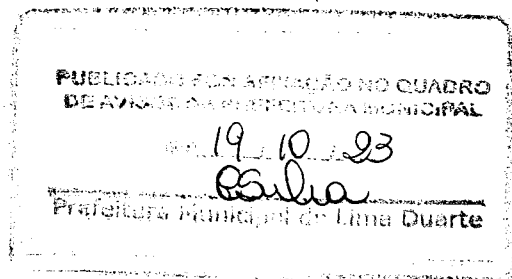 PUBLICADO POR AFIXAÇÃO NO QUADRO
DE AVISOS DA PREFEITURA MUNICIPAL
19 / 10 / 23
Prefeitura Municipal de Lima Duarte